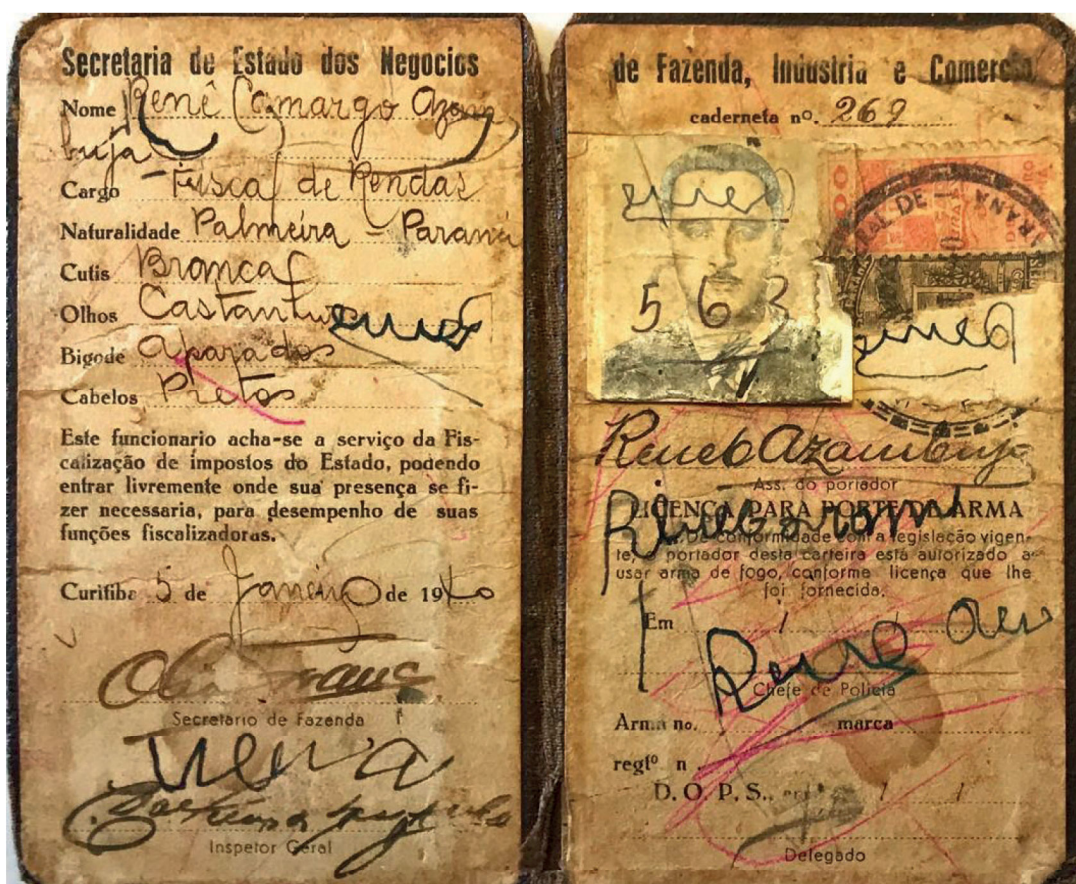 Secretaria de Estado dos Negocios
Nome Renê Camargo Azam
buja
Cargo Fiscal de Rendas
Naturalidade Palmeira - Paraná
Cutis Branca
Olhos Castanhos
Bigode Aparados
Cabelos Pretos
Este funcionario acha-se a serviço da Fis-
calização de impostos do Estado, podendo
entrar livremente onde sua presença se fi-
zer necessaria, para desempenho de suas
funções fiscalizadoras.
Curitiba 5 de Janeiro de 1940
Secretario de Fazenda
Inspetor Geral
de Fazenda, Industria e Comercio
caderneta nº. 269
563
RenebAzambuja
Ass. do portador
LICENÇA PARA PORTE DE ARMA
De conformidade com a legislação vigen-
te, o portador desta carteira está autorizado a
usar arma de fogo, conforme licença que lhe
foi fornecida.
Em / /
Chefe de Policia
Arma no. marca
regtº n
D. O. P. S., em / /
Delegado